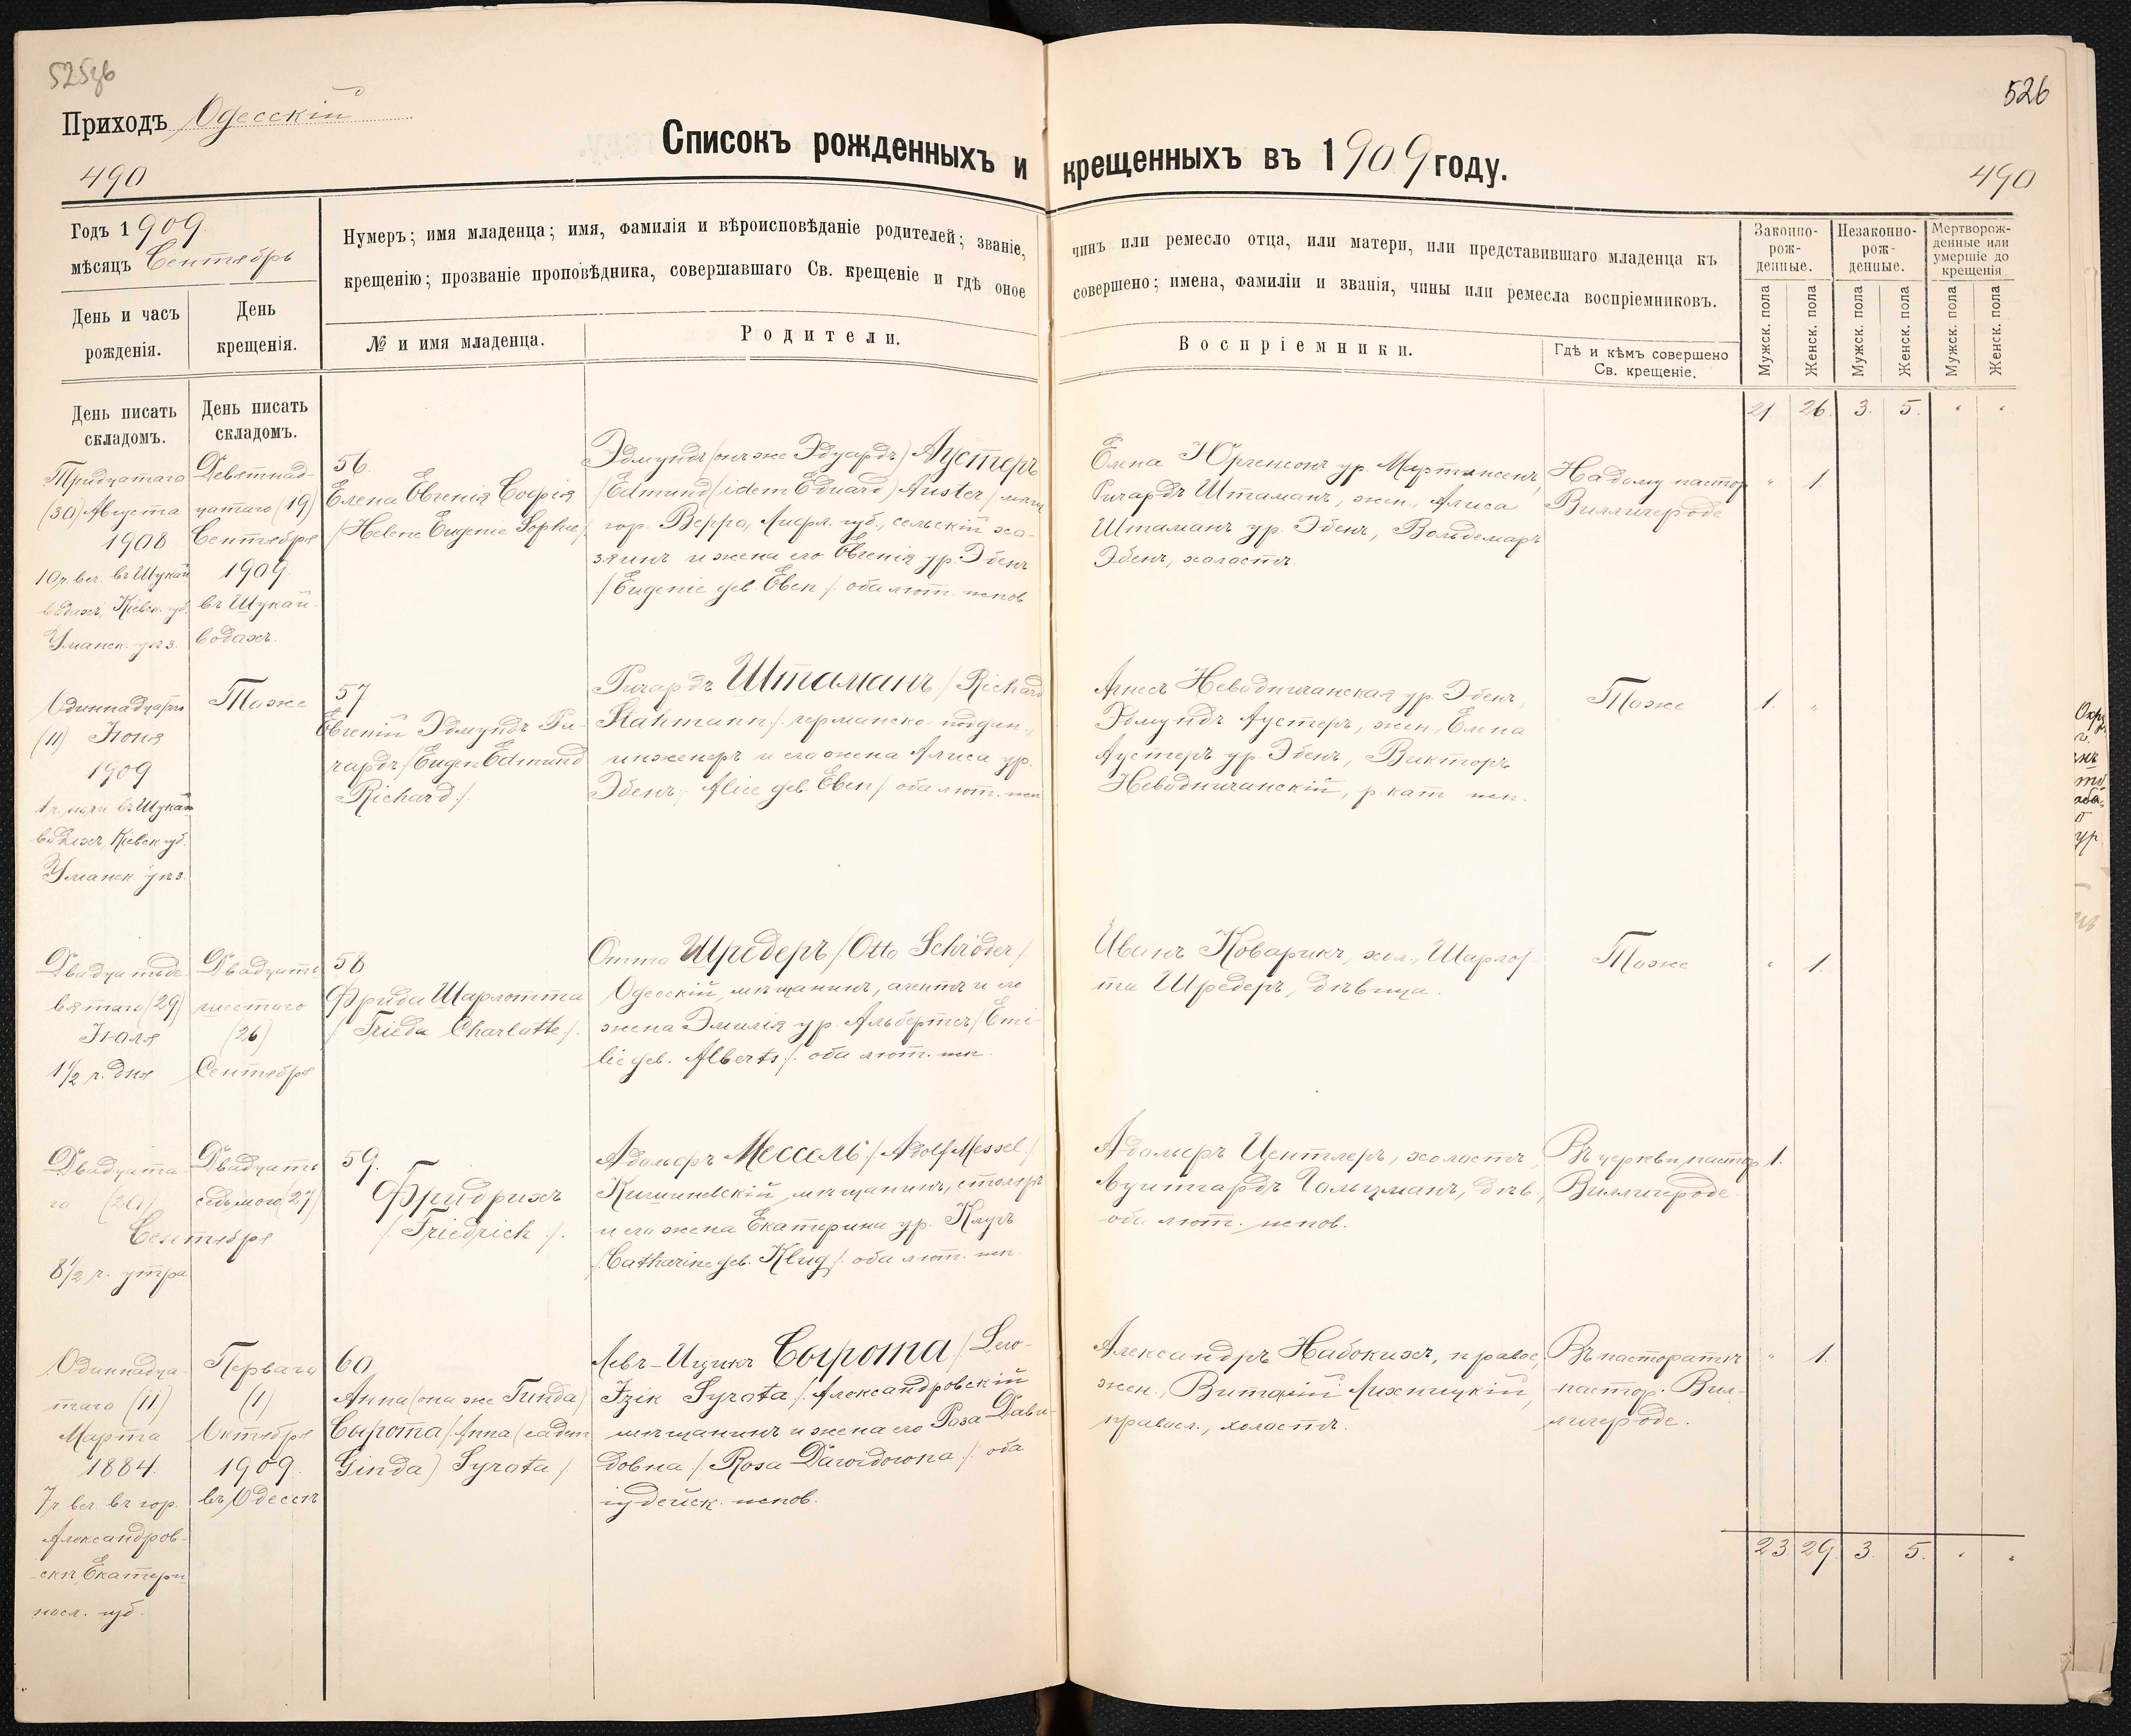 525 об
526
Приходъ Одесскій
Списокъ рожденныхъ и крещенныхъ въ 1909 году.
490
490
Годъ 1909.
мѣсяцъ Сентябрь
Нумеръ; имя младенца; имя, фамилія и вѣроисповѣданіе родителей; званіе, чинъ или ремесло отца, или матери, или представившаго младенца къ
крещенію; прозваніе проповѣдника, совершавшаго Св. крещеніе и гдѣ оное совершено; имена, фамиліи и званія, чины или ремесла воспріемниковъ.
Законно-
рож-
денные.
Незаконно-
рож-
денные.
Мертворож-
денные или
умершіе до
крещенія
День и часъ
рожденія.
День
крещенія.
№ и имя младенца.
Родители.
Воспріемники.
Гдѣ и кѣмъ совершено
Св. крещеніе.
Мужск. пола
Женск. пола
Мужск. пола
Женск. пола
Мужск. пола
Женск. пола
День писать
складомъ.
День писать
складомъ.
21 26. 3. 5. " "
Тридцатаго
(30) Августа
1908
10 ч. веч. въ Шукай
водахъ, Кіевск. губ.
Уманск. уѣз.
Девятнад-
цатаго (19)
Сентября
1909
въ Шукай-
водахъ.
56.
Елена Евгенія Софія
/Helene Eugenie Sophie/.
Эдмундъ (онъ же Эдуардъ) Аустеръ
/Edmund (idem Eduard) Auster/. мѣщ
гор. Верро, Лифл. губ., сельскій хо-
зяинъ и жена его Евгенія ур. Эбенъ
/Eugenie geb. Eben/. оба лют. испов
Елена Юргенсонъ ур. Мартинсенъ,
Ричардъ Штаманъ, жен., Алиса
Штаманъ ур. Эбенъ, Вольдемаръ
Эбенъ, холостъ.
На дому пастор
Виллигероде
" 1.
Одиннадцатаго
(11) Іюня
1909
1 ч. ночи въ Шукай
водахъ, Кіевск. губ.
Уманск. уѣз.
Тоже
57
Евгеній Эдмундъ Ри-
чардъ /Eugen Edmund
Richard/.
Ричардъ Штаманъ /Richard
Stahmann/. германско-поддан.,
инженеръ и его жена Алиса ур.
Эбенъ, Alice geb. Eben/. оба лют. исп
Агнеса Неводничанская ур. Эбенъ,
Эдмундъ Аустеръ, жен., Елена
Аустеръ ур. Эбенъ, Викторъ
Неводничанскій, р. кат. исп.
Тоже
1. "
Двадцатьде-
вятаго (29)
Іюля
1½ ч. дня
Двадцать
шестого
(26)
Сентября
58
Фрида Шарлотта
/Frieda Charlotte/.
Отто Шредеръ /Otto Schröder/
Одесскій, мѣщанинъ, агентъ и его
жена Эмилія ур. Альбертсъ /Emi-
lie geb. Alberts/. оба лют. исп.
Иванъ Коварикъ, хол., Шарлот-
та Шредеръ, дѣвица.
Тоже
" 1.
Двадцата-
го (20)
Сентября
8½ ч. утра
Двадцать
седьмого (27)
59.
Фридрихъ
/Friedrich/.
Адольфъ Мессель /Adolf Messel/
Кишиневскій, мѣщанинъ, столяръ
и его жена Екатерина ур. Клугъ
/Catharine geb. Klug/. оба лют. исп.
Адольфъ Центлеръ, холостъ,
Луитгардъ Гольцманъ, дѣв.,
оба лют. испов.
Въ церкви пастор
Виллигероде.
1.
Одиннадца-
таго (11)
Марта
1884.
7 ч. веч. въ гор.
Александров-
скѣ, Екатери-
носл. губ.
Перваго
(1)
Октября
1909.
въ Одессѣ
60
Анна (она же Гинда)
Сырота /Anna (eadem
Ginda) Syrota/
Левъ-Ицикъ Сырота /Lew-
Izik Syrota/. Александровскій
мѣщанинъ и жена его Роза Дави-
довна /Rosa Dawidowna/. оба
іудейск. испов.
Александръ Набокихъ, правос.,
жен., Виталій Лихницкій,
правосл., холостъ.
Въ пасторатѣ
пастор. Вил-
лигероде.
" 1.
23. 29. 3. 5. " "